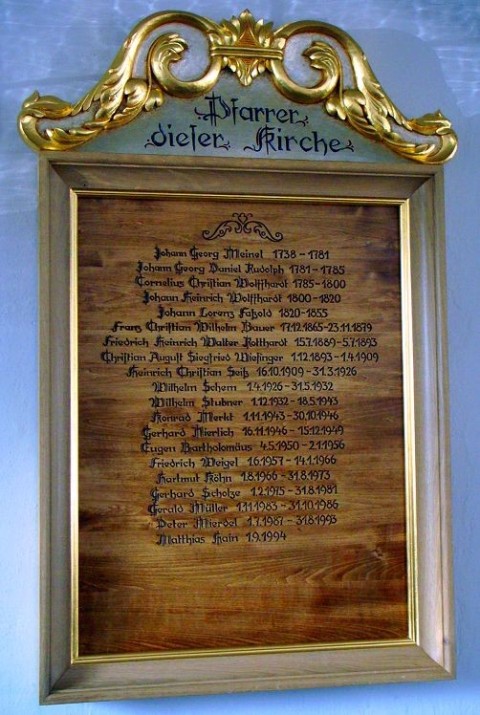 Pfarrer
dieser Kirche
Johann Georg Meinel 1738 – 1781
Johann Georg Daniel Rudolph 1781 – 1785
Cornelius Christian Wolffhardt 1785 – 1800
Johann Heinrich Wolffhardt 1800 – 1820
Johann Lorenz Faßold 1820 – 1855
Franz Christian Wilhelm Bauer 17.12.1865 – 23.11.1879
Friedrich Heinrich Walter Rotthardt 15.7.1889 – 5.7.1893
Christian August Siegfried Wiesinger 1.12.1893 – 1.4.1909
Heinrich Christian Seiß 16.10.1909 – 31.3.1926
Wilhelm Schem 1.4.1926 – 31.5.1932
Wilhelm Stubner 1.12.1932 – 18.5.1943
Konrad Merkt 1.11.1943 – 30.10.1946
Gerhard Nierlich 16.11.1946 – 15.12.1949
Eugen Bartholomäus 4.5.1950 – 2.1.1956
Friedrich Weigel 1.6.1957 – 14.1.1966
Hartmut Köhn 1.8.1966 – 31.8.1973
Gerhard Scholze 1.2.1975 – 31.8.1981
Gerald Müller 1.11.1983 – 31.10.1986
Peter Mierdel 1.7.1987 – 31.8.1993
Matthias Hain 1.9.1994